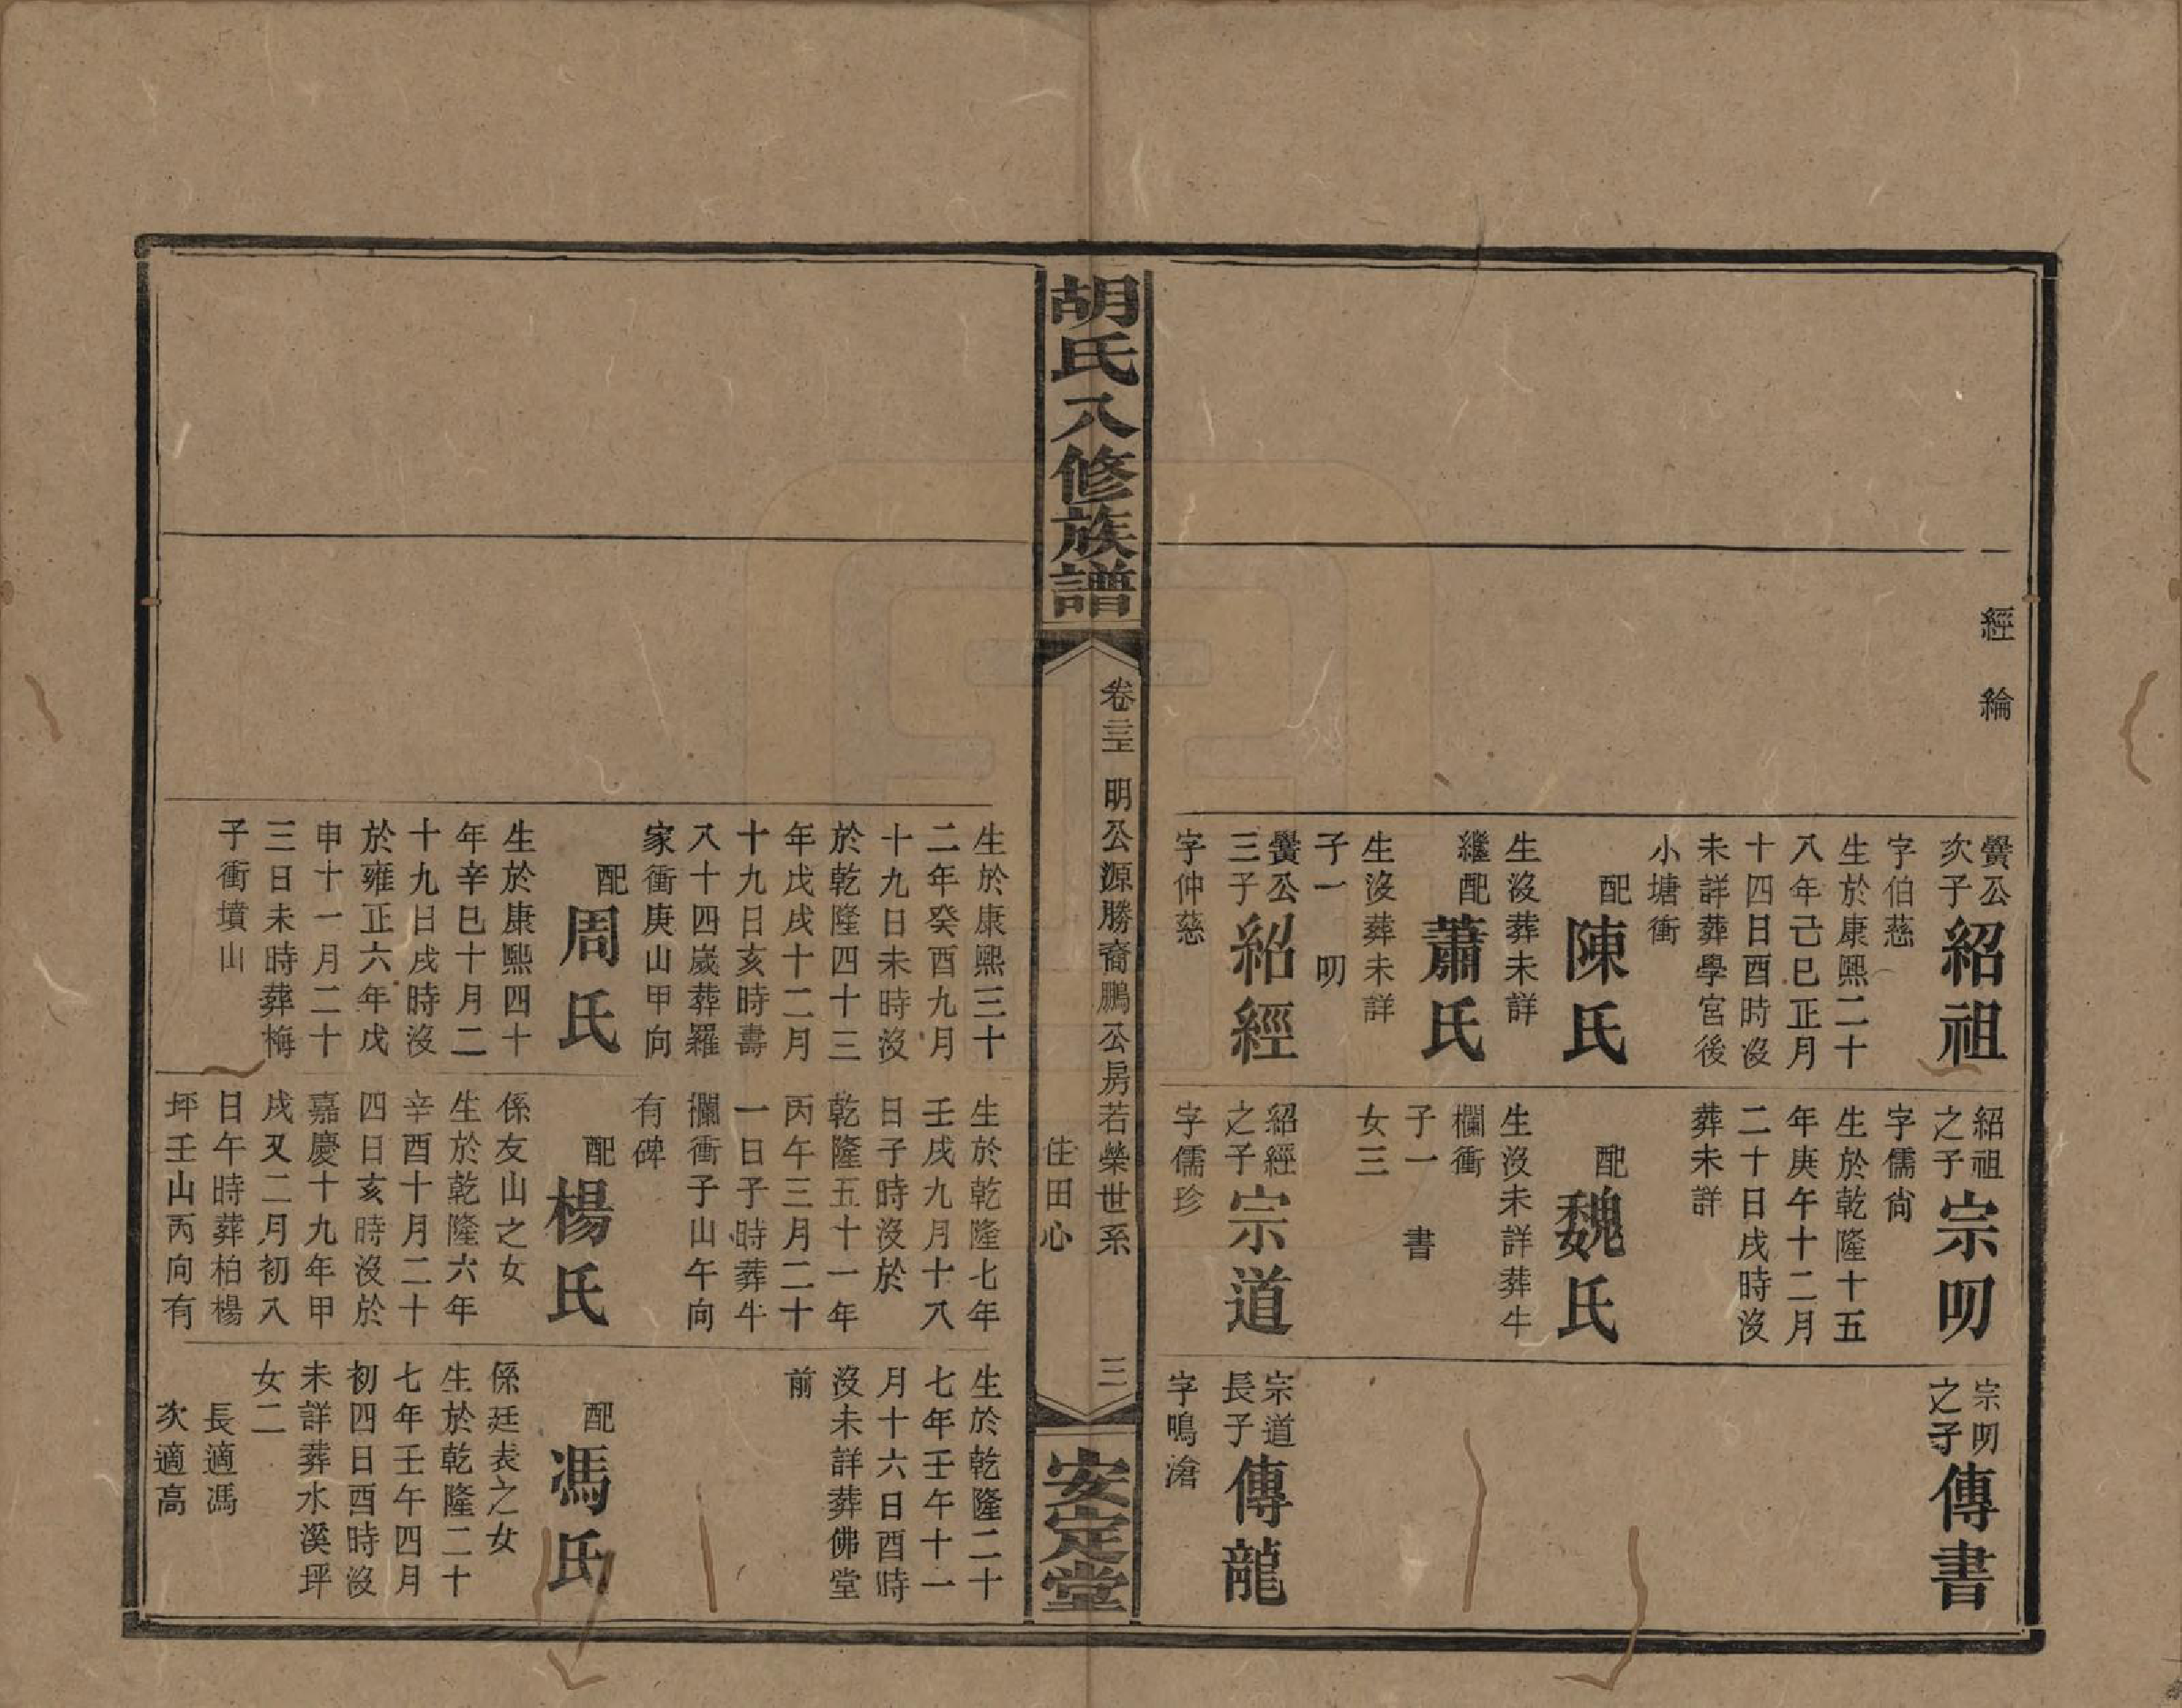 經　綸
黌公
次子
紹祖
字伯慈
生於康熙二十
八年己巳正月
十四日酉時沒
未詳葬學宮後
小塘衝
配
陳氏
生沒葬未詳
繼配
蕭氏
生沒葬未詳
子一　叨
黌公
三子
紹經
字仲慈
紹祖
之子
宗叨
字儒尙
生於乾隆十五
年庚午十二月
二十日戌時沒
葬未詳
配
魏氏
生沒未詳葬牛
欄衝
子一　書
女三
紹經
之子
宗道
字儒珍
宗叨
之子
傳書
宗道
長子
傳龍
字鳴滄
胡氏八修族譜
卷三五　明公源勝裔鵬公房若榮世系
住田心
三
安定堂
生於康熙三十
二年癸酉九月
十九日未時沒
於乾隆四十三
年戊戌十二月
十九日亥時壽
八十四歲葬羅
家衝庚山甲向
配
周氏
生於康熙四十
年辛巳十月二
十九日戌時沒
於雍正六年戊
申十一月二十
三日未時葬梅
子衝墳山
生於乾隆七年
壬戌九月十八
日子時沒於
乾隆五十一年
丙午三月二十
一日子時葬牛
欄衝子山午向
有碑
配
楊氏
係友山之女
生於乾隆六年
辛酉十月二十
四日亥時沒於
嘉慶十九年甲
戌又二月初八
日午時葬柏楊
坪壬山丙向有
生於乾隆二十
七年壬午十一
月十六日酉時
沒未詳葬佛堂
前
配
馮氏
係廷表之女
生於乾隆二十
七年壬午四月
初四日酉時沒
未詳葬水溪坪
女二
長適馮
次適高